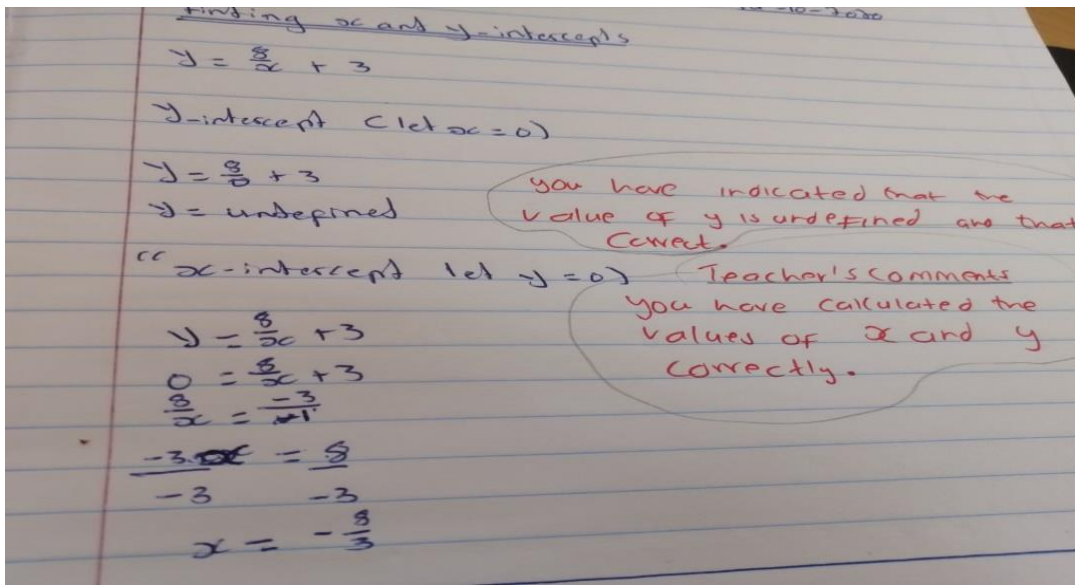 Finding x and y-intercepts
-10-2020
y = 8/x + 3
y-intercept (let x = 0)
y = 8/0 + 3
y = undefined
you have indicated that the
value of y is undefined and that
Correct.
“ x-intercept let y = 0)
Teacher's comments
you have calculated the
values of x and y
correctly.
y = 8/x + 3
0 = 8/x + 3
8/x = -3/1
-3x = 8
-3 -3
x = -8/3